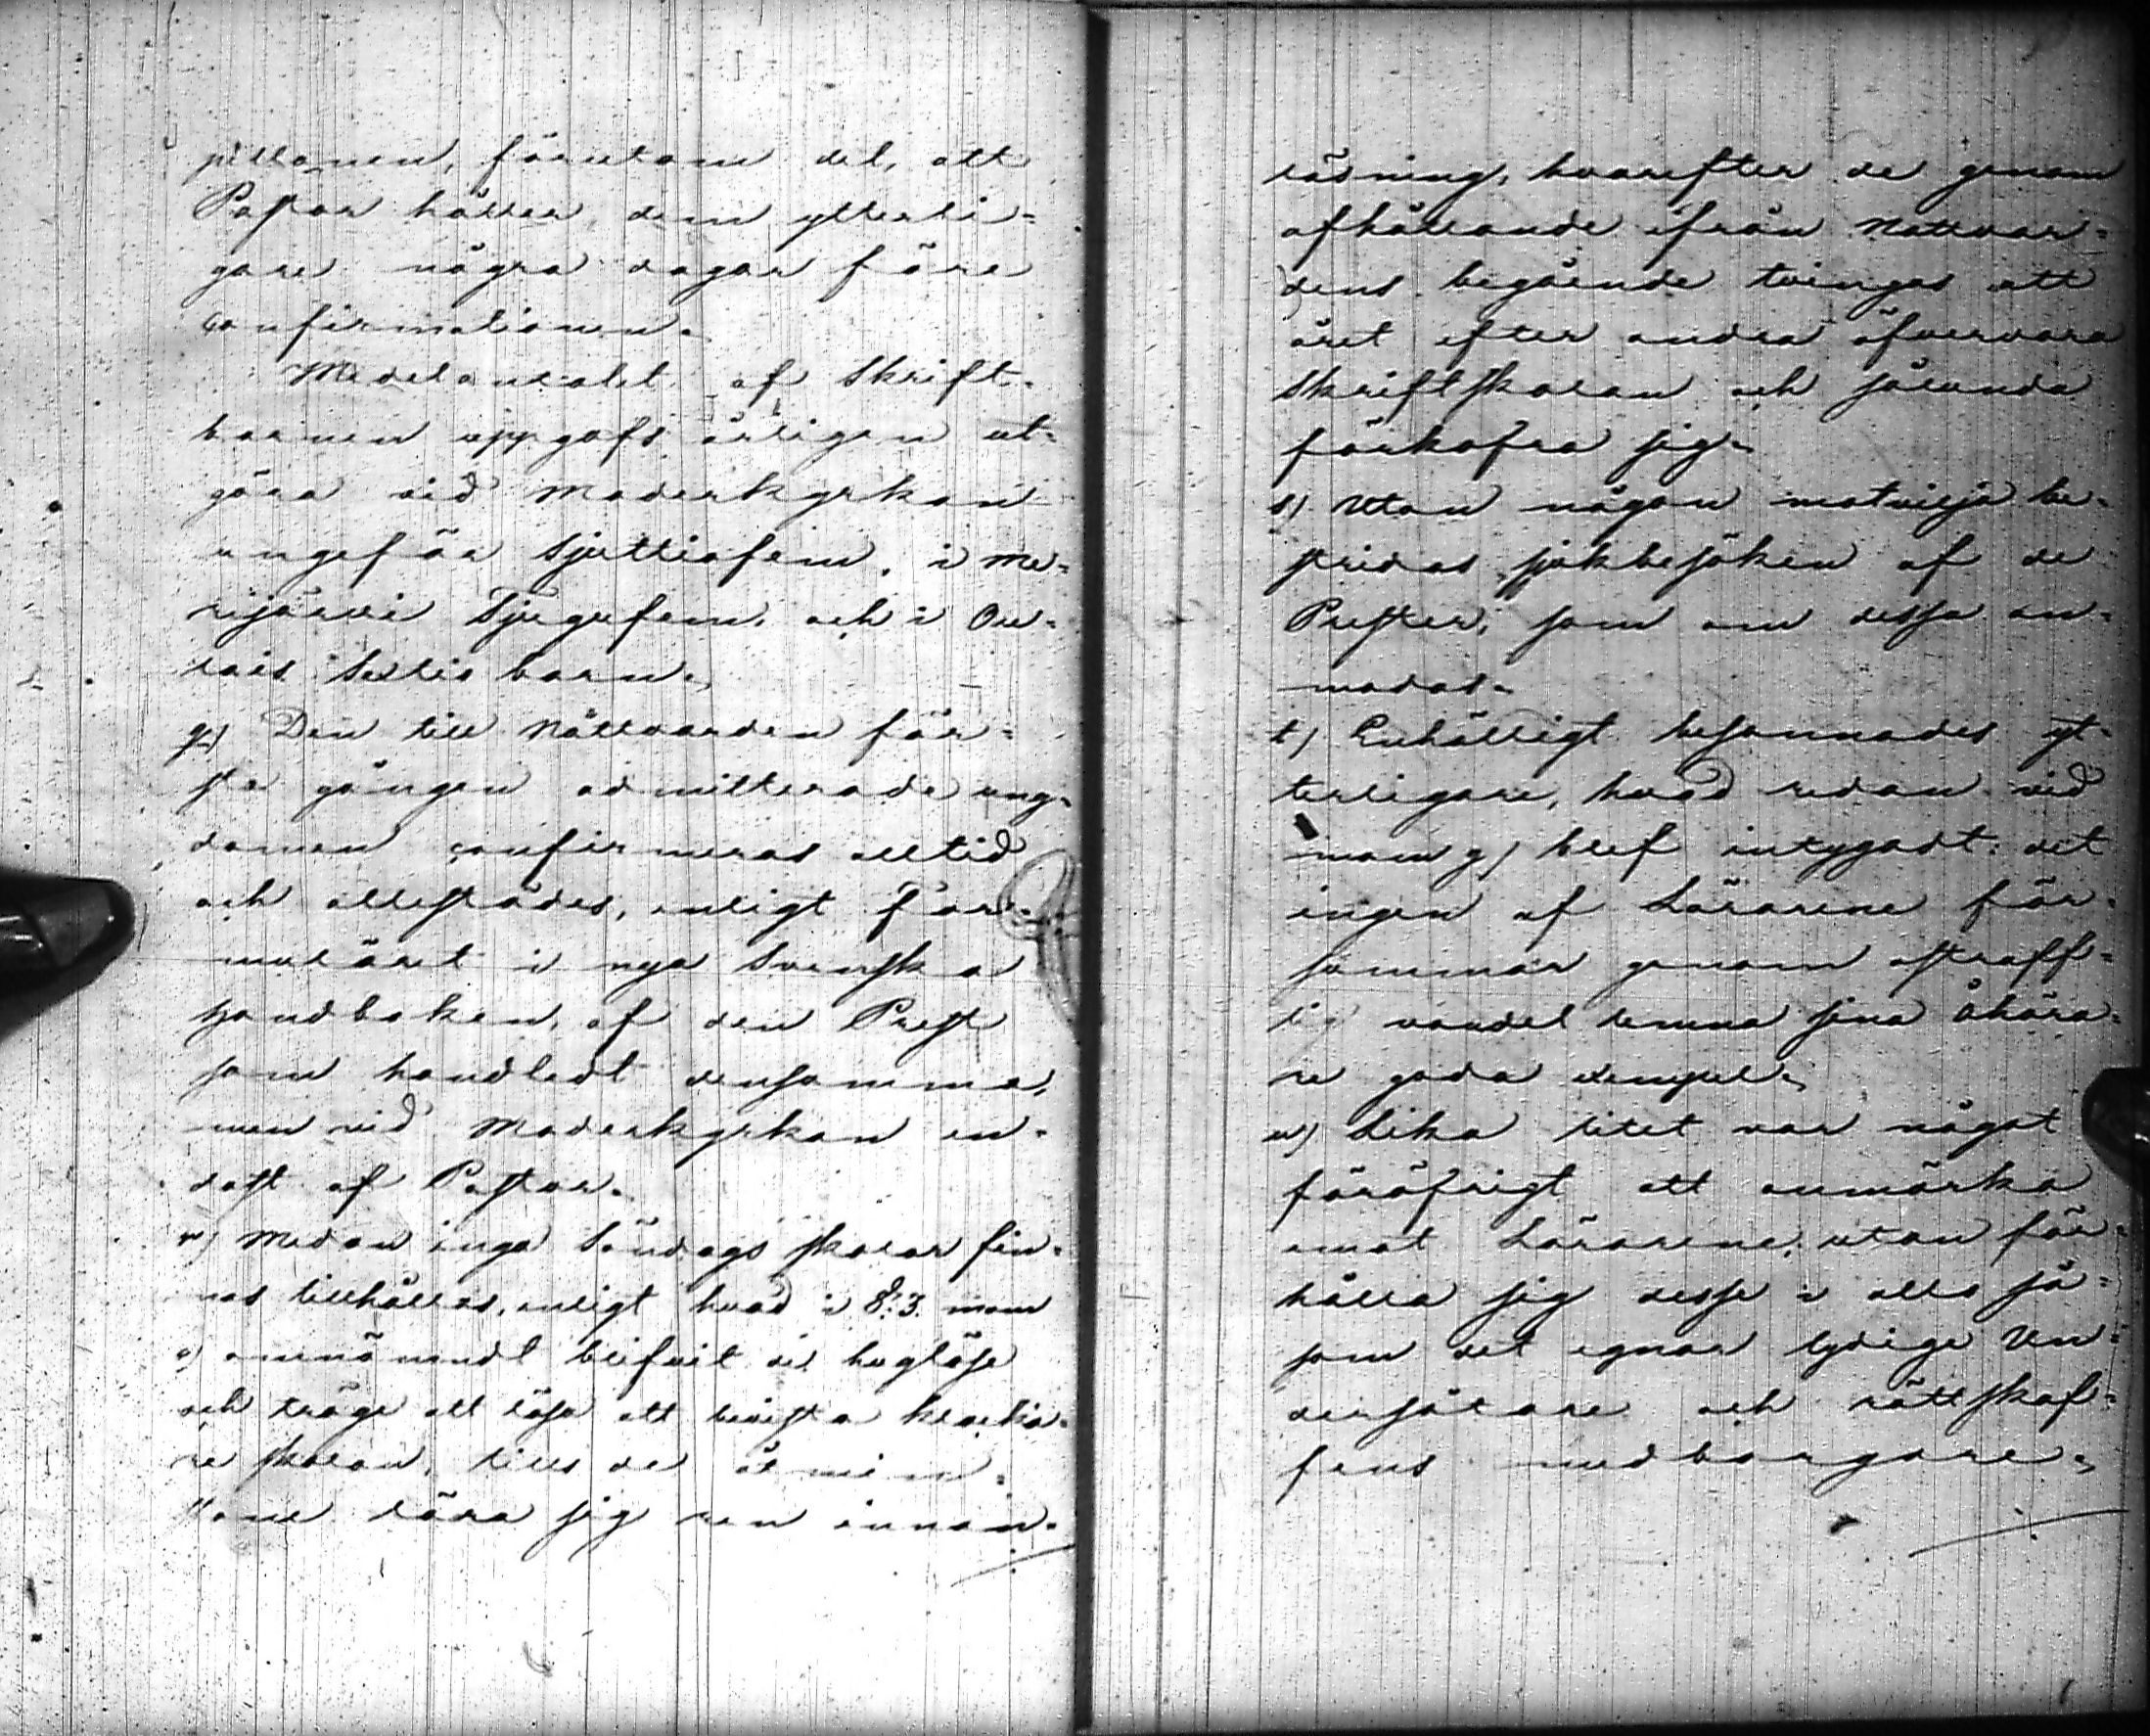 pellanen, förutom det, att
Pastor håller dem ytterli=
gare några dagar före
confirmationen.
Medelantalet af Skrift-
barnen uppgafs årligen ut-
göra vid Moderkyrkan
ungefär Sjuttiofem, i Me-
rijärvi Tjugufem, och i Ou-
lais Sextio barn.
q) Den till Nattvarden för-
sta gången admitterade ung-
domen confirmeras alltid
och allestädes, enligt For-
muläret i nya Svenska
Handboken, af den Prest
som handledt densamma,
men vid Moderkyrkan en-
dast af Pastor.
r) Medan inga Söndags skolor fin-
nas tillhålles, enligt hvad i §. 3. mom
o) omnämndt blifvit de hoglöse
och tröge att läsa att bevista klocka-
re skolan, tills de åtmin-
stone lära sig ren innan-
läsning, hvarefter de genom
afhållande ifrån Nattvar=
dens begående tvingas att
året efter andra öfvervara
Skriftskolan och sålunda
förkofra sig.
s) Utan någon motvilja be-
stridas sjukbesöken af de
Prester, som om dessa an-
modas.
t) Enhälligt besannades yt-
terligare, hvad redan vid
mom g) blef intygadt: det
ingen af Lärarene för-
summar genom ostraff-
lig vandel lemna sina åhöra-
re goda exempel.
u) Lika litet var något
föröfrigt att anmärka
emot Lärarene, utan för-
hålla sig desse i allo så=
som det egnar lydige Un-
dersåtare och rättskaf=
fens medborgare.